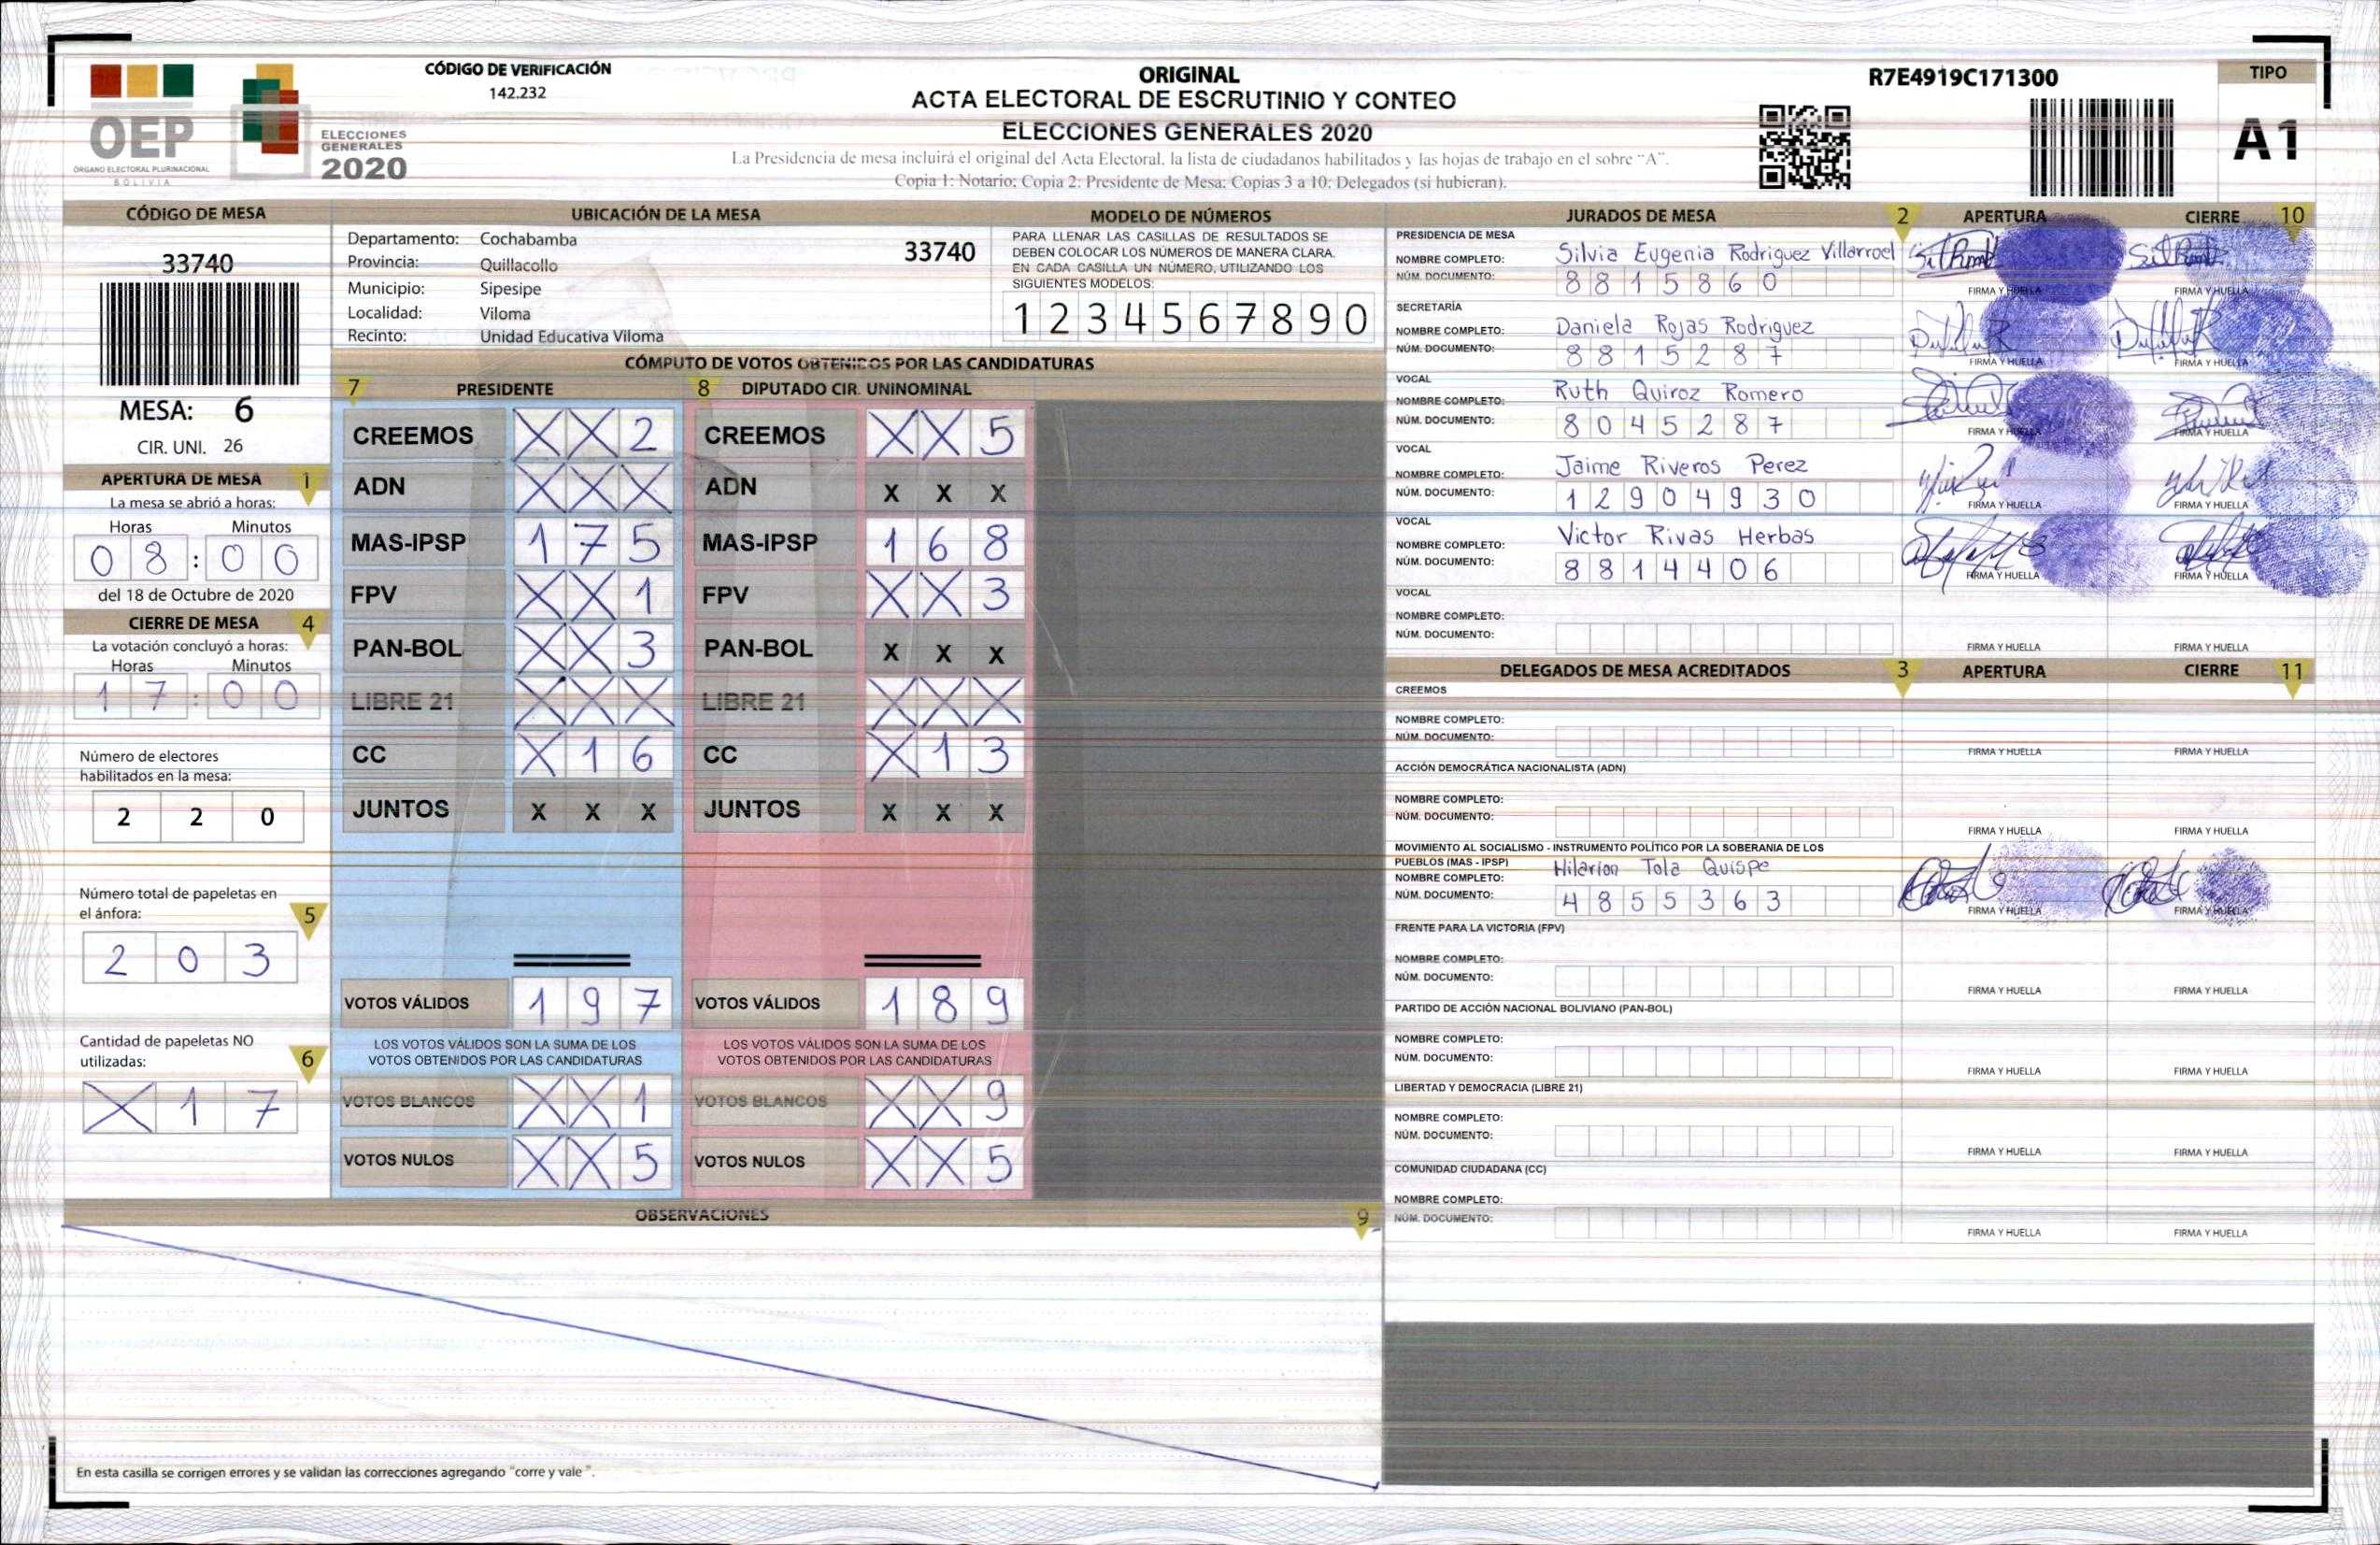 OEP
ÓRGANO ELECTORAL PLURINACIONAL
BOLIVIA
ELECCIONES
GENERALES
2020
CÓDIGO DE VERIFICACIÓN
142.232
ORIGINAL
ACTA ELECTORAL DE ESCRUTINIO Y CONTEO
ELECCIONES GENERALES 2020
La Presidencia de mesa incluirá el original del Acta Electoral, la lista de ciudadanos habilitados y las hojas de trabajo en el sobre "A".
Copia 1: Notario; Copia 2: Presidente de Mesa; Copias 3 a 10: Delegados (si hubieran).
R7E4919C171300
TIPO
A1
CÓDIGO DE MESA
33740
MESA: 6
CIR. UNI. 26
APERTURA DE MESA 1
La mesa se abrió a horas:
Horas Minutos
0 8 : 0 0
del 18 de Octubre de 2020
CIERRE DE MESA 4
La votación concluyó a horas:
Horas Minutos
1 7 : 0 0
Número de electores
habilitados en la mesa:
2 2 0
Número total de papeletas en
el ánfora: 5
2 0 3
Cantidad de papeletas NO
utilizadas: 6
X 1 7
UBICACIÓN DE LA MESA
Departamento: Cochabamba
33740
Provincia: Quillacollo
Municipio: Sipesipe
Localidad: Viloma
Recinto: Unidad Educativa Viloma
MODELO DE NÚMEROS
PARA LLENAR LAS CASILLAS DE RESULTADOS SE
DEBEN COLOCAR LOS NÚMEROS DE MANERA CLARA.
EN CADA CASILLA UN NÚMERO, UTILIZANDO LOS
SIGUIENTES MODELOS:
1 2 3 4 5 6 7 8 9 0
CÓMPUTO DE VOTOS OBTENIDOS POR LAS CANDIDATURAS
7 PRESIDENTE 8 DIPUTADO CIR. UNINOMINAL
CREEMOS X X 2 CREEMOS X X 5
ADN X X X ADN X X X
MAS-IPSP 1 7 5 MAS-IPSP 1 6 8
FPV X X 1 FPV X X 3
PAN-BOL X X 3 PAN-BOL X X X
LIBRE 21 X X X LIBRE 21 X X X
CC X 1 6 CC X 1 3
JUNTOS X X X JUNTOS X X X
VOTOS VÁLIDOS 1 9 7 VOTOS VÁLIDOS 1 8 9
LOS VOTOS VÁLIDOS SON LA SUMA DE LOS LOS VOTOS VÁLIDOS SON LA SUMA DE LOS
VOTOS OBTENIDOS POR LAS CANDIDATURAS VOTOS OBTENIDOS POR LAS CANDIDATURAS
VOTOS BLANCOS X X 1 VOTOS BLANCOS X X 9
VOTOS NULOS X X 5 VOTOS NULOS X X 5
OBSERVACIONES 9
En esta casilla se corrigen errores y se validan las correcciones agregando "corre y vale ".
JURADOS DE MESA 2 APERTURA CIERRE 10
PRESIDENCIA DE MESA
NOMBRE COMPLETO: Silvia Eugenia Rodriguez Villarroel
NÚM. DOCUMENTO: 8 8 1 5 8 6 0
FIRMA Y HUELLA FIRMA Y HUELLA
SECRETARÍA
NOMBRE COMPLETO: Daniela Rojas Rodriguez
NÚM. DOCUMENTO: 8 8 1 5 2 8 7
FIRMA Y HUELLA FIRMA Y HUELLA
VOCAL
NOMBRE COMPLETO: Ruth Quiroz Romero
NÚM. DOCUMENTO: 8 0 4 5 2 8 7
FIRMA Y HUELLA FIRMA Y HUELLA
VOCAL
NOMBRE COMPLETO: Jaime Riveros Perez
NÚM. DOCUMENTO: 1 2 9 0 4 9 3 0
FIRMA Y HUELLA FIRMA Y HUELLA
VOCAL
NOMBRE COMPLETO: Victor Rivas Herbas
NÚM. DOCUMENTO: 8 8 1 4 4 0 6
FIRMA Y HUELLA FIRMA Y HUELLA
VOCAL
NOMBRE COMPLETO:
NÚM. DOCUMENTO:
FIRMA Y HUELLA FIRMA Y HUELLA
DELEGADOS DE MESA ACREDITADOS 3 APERTURA CIERRE 11
CREEMOS
NOMBRE COMPLETO:
NÚM. DOCUMENTO:
FIRMA Y HUELLA FIRMA Y HUELLA
ACCIÓN DEMOCRÁTICA NACIONALISTA (ADN)
NOMBRE COMPLETO:
NÚM. DOCUMENTO:
FIRMA Y HUELLA FIRMA Y HUELLA
MOVIMIENTO AL SOCIALISMO - INSTRUMENTO POLÍTICO POR LA SOBERANIA DE LOS
PUEBLOS (MAS - IPSP)
NOMBRE COMPLETO: Hilarion Tola Quispe
NÚM. DOCUMENTO: 4 8 5 5 3 6 3
FIRMA Y HUELLA FIRMA Y HUELLA
FRENTE PARA LA VICTORIA (FPV)
NOMBRE COMPLETO:
NÚM. DOCUMENTO:
FIRMA Y HUELLA FIRMA Y HUELLA
PARTIDO DE ACCIÓN NACIONAL BOLIVIANO (PAN-BOL)
NOMBRE COMPLETO:
NÚM. DOCUMENTO:
FIRMA Y HUELLA FIRMA Y HUELLA
LIBERTAD Y DEMOCRACIA (LIBRE 21)
NOMBRE COMPLETO:
NÚM. DOCUMENTO:
FIRMA Y HUELLA FIRMA Y HUELLA
COMUNIDAD CIUDADANA (CC)
NOMBRE COMPLETO:
NÚM. DOCUMENTO:
FIRMA Y HUELLA FIRMA Y HUELLA